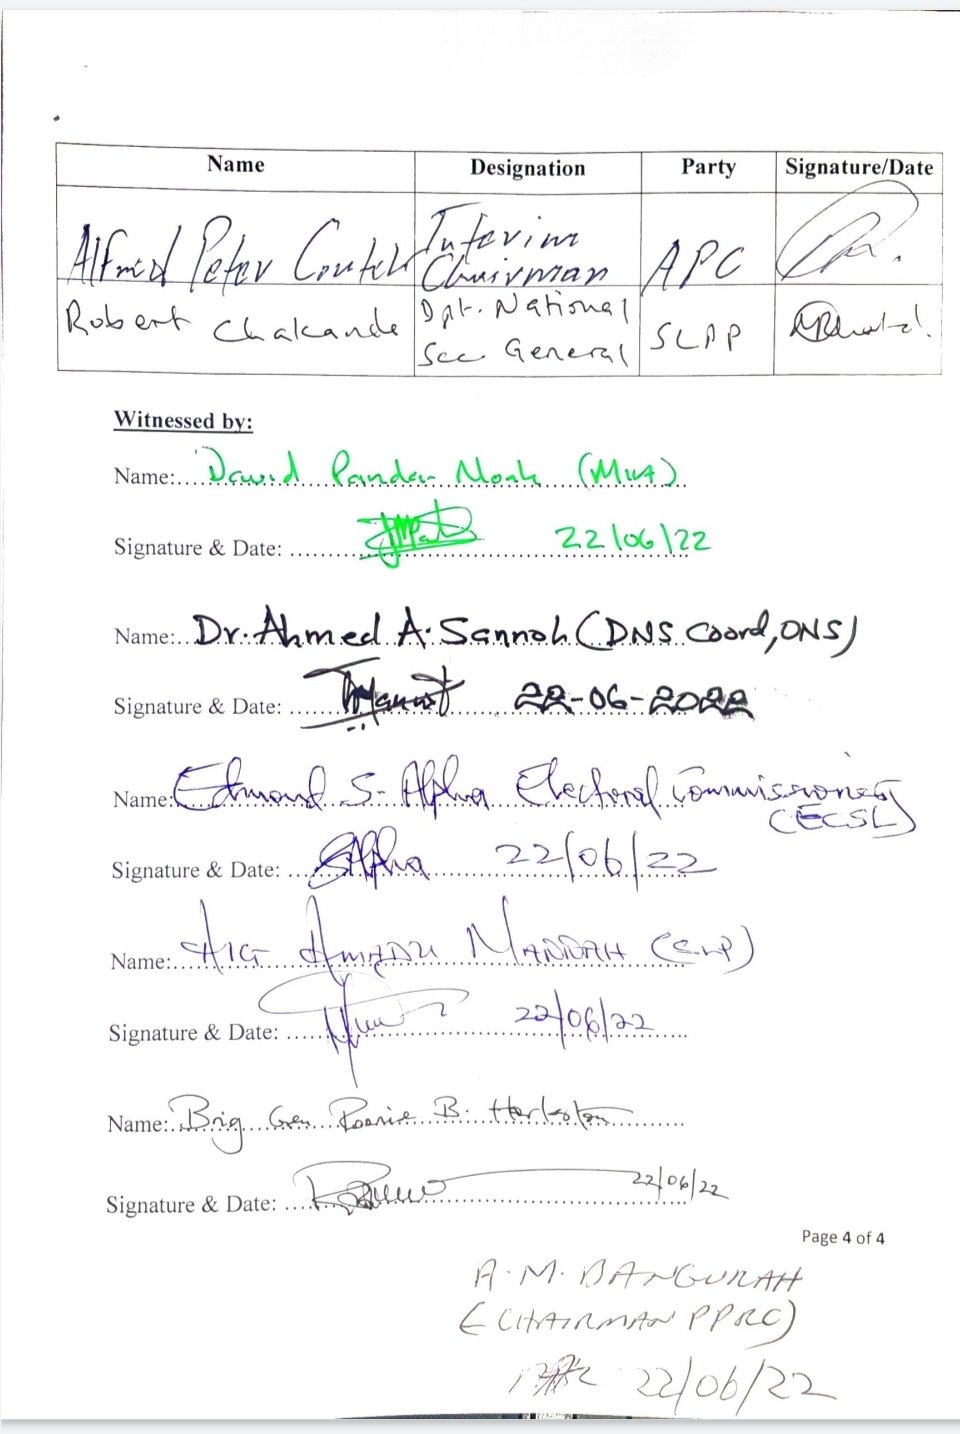 Name Designation Party Signature/Date
Alfred Peter Conteh Interim Chairman APC
Robert Chakanda Dpt. National Sec. General SLPP
Witnessed by:
Name: David Panda-Noah (MIA)
Signature & Date: 22/06/22
Name: Dr. Ahmed A. Sannoh (DNS Coord, ONS)
Signature & Date: 22-06-2022
Name: Edmond S. Alpha Electoral Commissioner
(ECSL)
Signature & Date: Alpha 22/06/22
Name: AIG Amadu Mannah (SLP)
Signature & Date: 22/06/22
Name: Brig Gen Ronnie B. Harleston
Signature & Date: 22/06/22
Page 4 of 4
A.M. BANGURAH
(CHAIRMAN PPRC)
22/06/22